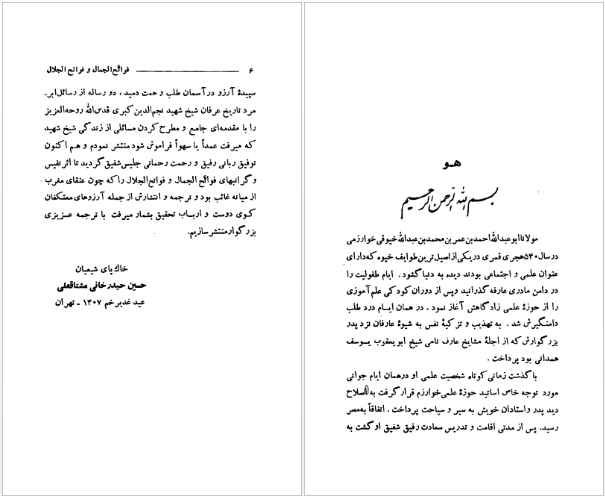 ۶ فوائح الجمال و فواتح الجلال
سپیدهٔ آرزو در آسمان طلب و همت دمید، دو رساله از رسائل ابر-
مرد تاریخ عرفان شیخ شهید نجم‌الدین کبری قدس‌الله روحه‌العزیز
را با مقدمه‌ای جامع و مطرح کردن مسائلی از زندگی شیخ شهید
که میرفت عمداً یا سهواً فراموش شود منتشر نمودم و هم اکنون
توفیق ربانی رفیق و رحمت رحمانی جلیس شفیق گردید تا اثر نفیس
و گرانبهای فوائح الجمال و فواتح الجلال را که چون عنقای مغرب
از میانه غائب بود و ترجمه و انتشارش از جمله آرزوهای معتکفان
کوی دوست و ارباب تحقیق بشمار میرفت با ترجمه عزیزی
بزرگوار منتشر سازیم.
خاک پای شیعیان
حسین حیدرخانی مشتاقعلی
عید غدیر خم ۱۴۰۷ - تهران
هو
بسم الله الرحمن الرحیم
مولانا ابو عبدالله احمد بن عمر بن محمد بن عبدالله خیوقی خوارزمی
در سال ۵۴۰ هجری قمری در یکی از اصیل‌ترین طوایف خیوه که دارای
عنوان علمی و اجتماعی بودند دیده به دنیا گشود. ایام طفولیت را
در دامن مادری عارفه گذرانید و پس از دوران کودکی علم‌آموزی
را از حوزهٔ علمی زادگاهش آغاز نمود. در همان ایام درد طلب
دامنگیرش شد. به تهذیب و تزکیهٔ نفس به شیوهٔ عارفان نزد پدر
بزرگوارش که از اجلهٔ مشایخ عارف نامی شیخ ابویعقوب یوسف
همدانی بود پرداخت.
با گذشت زمانی کوتاه شخصیت علمی او در همان ایام جوانی
مورد توجه خاص اساتید حوزهٔ علمی خوارزم قرار گرفت به صلاح
دید پدر و استادان خویش به سیر و سیاحت پرداخت. اتفاقاً به مصر
رسید. پس از مدتی اقامت و تدریس سعادت رفیق شفیق او گشت به